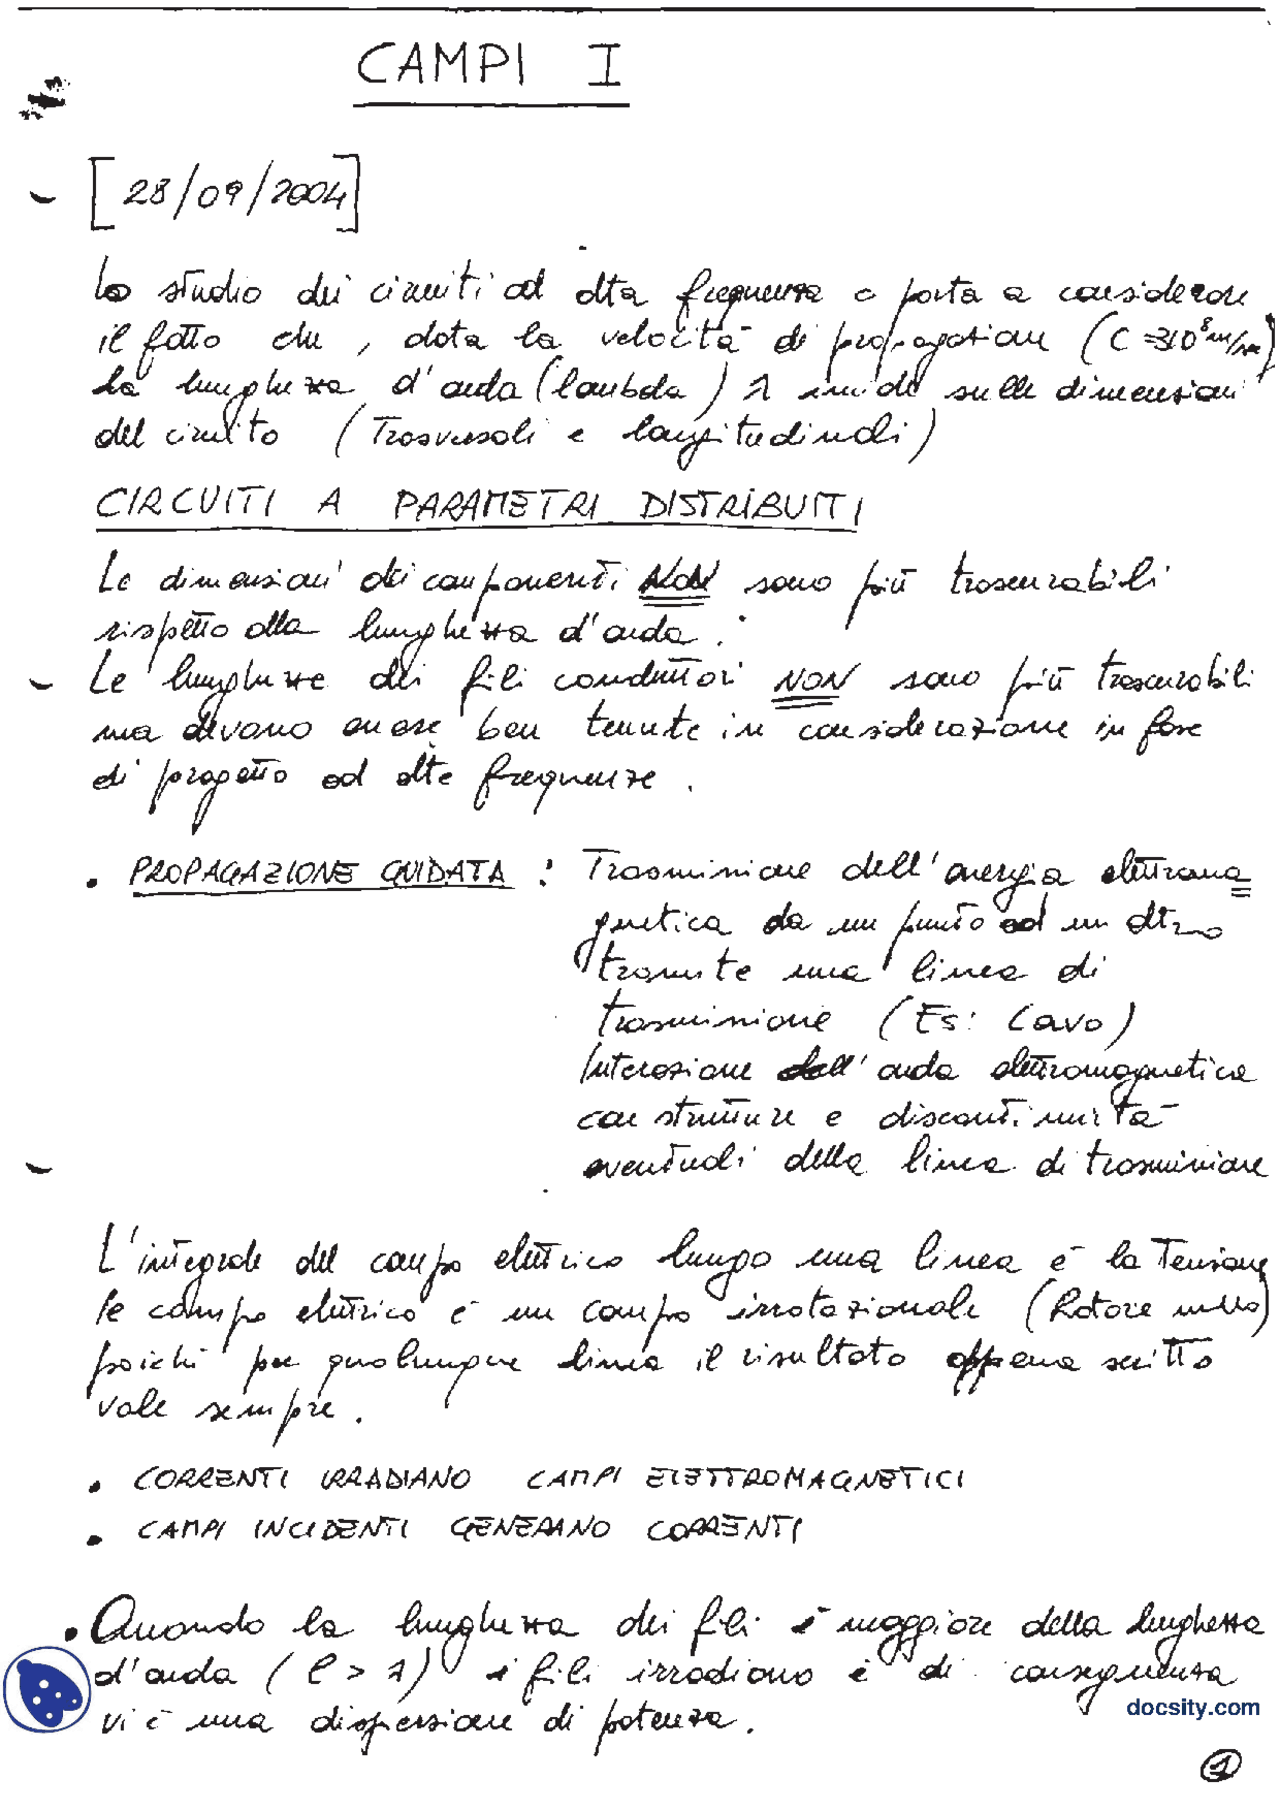 CAMPI I
[28/09/2004]
Lo studio dei circuiti ad alta frequenza porta a considerare
il fatto che, data la velocità di propagazione (C=3·10⁸ m/sec)
la lunghezza d'onda (lambda) λ incide sulle dimensioni
del circuito (Trasversali e longitudinali)
CIRCUITI A PARAMETRI DISTRIBUITI
Le dimensioni dei componenti NON sono più trascurabili
rispetto alla lunghezza d'onda.
Le lunghezze dei fili conduttori NON sono più trascurabili
ma devono essere ben tenute in considerazione in fase
di progetto ad alte frequenze.
• PROPAGAZIONE GUIDATA : Trasmissione dell'energia elettroma
gnetica da un punto ad un altro
tramite una linea di
trasmissione (Es: Cavo)
Interazione dell'onda elettromagnetica
con strutture e discontinuità
eventuali della linea di trasmissione
L'integrale del campo elettrico lungo una linea è la Tensione
se campo elettrico è un campo irrotazionale (Rotore nullo)
poiché per qualunque linea il risultato appena scritto
vale sempre.
• CORRENTI IRRADIANO CAMPI ELETTROMAGNETICI
• CAMPI INCIDENTI GENERANO CORRENTI
• Quando la lunghezza dei fili è maggiore della lunghezza
d'onda (l > λ) i fili irradiano e di conseguenza
vi è una dispersione di potenza.
docsity.com
1